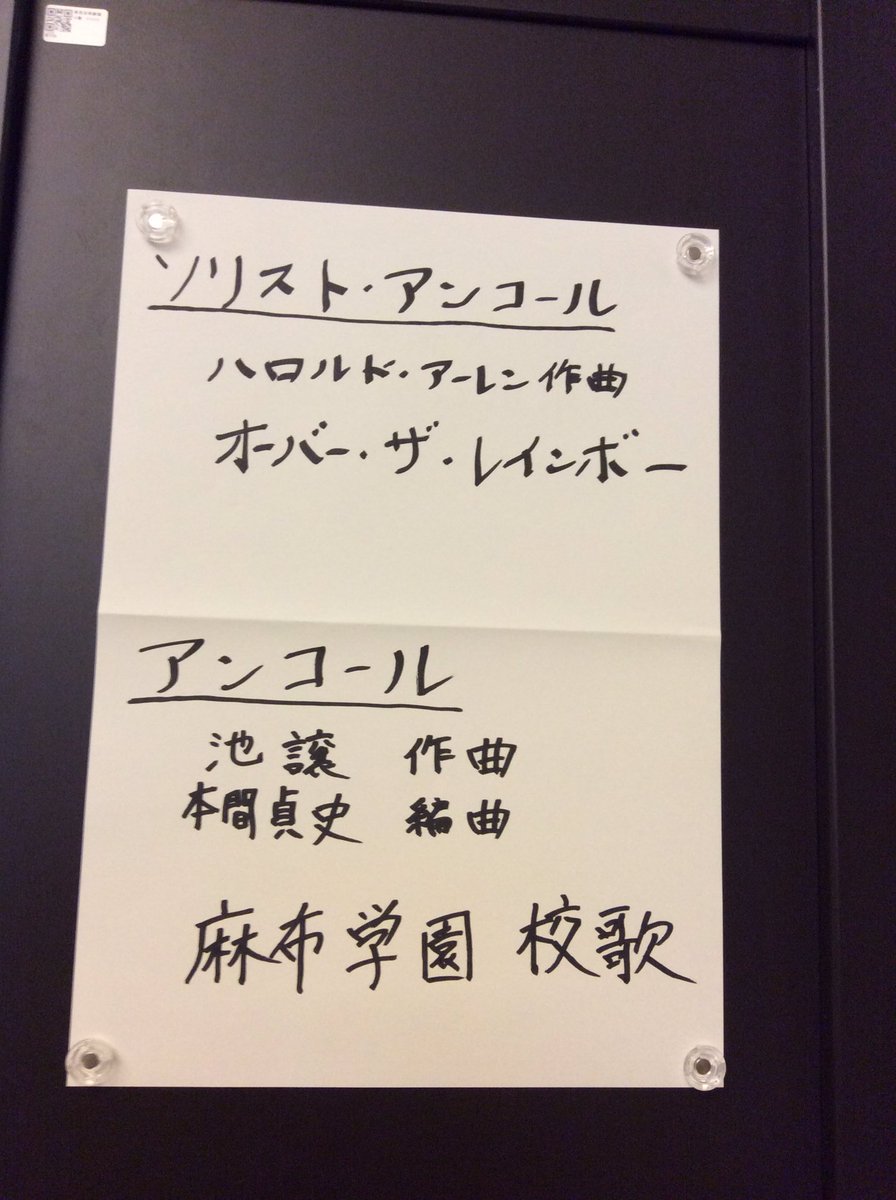 ソリスト・アンコール
ハロルド・アーレン作曲
オーバー・ザ・レインボー
アンコール
池譲 作曲
本間貞史 編曲
麻布学園 校歌